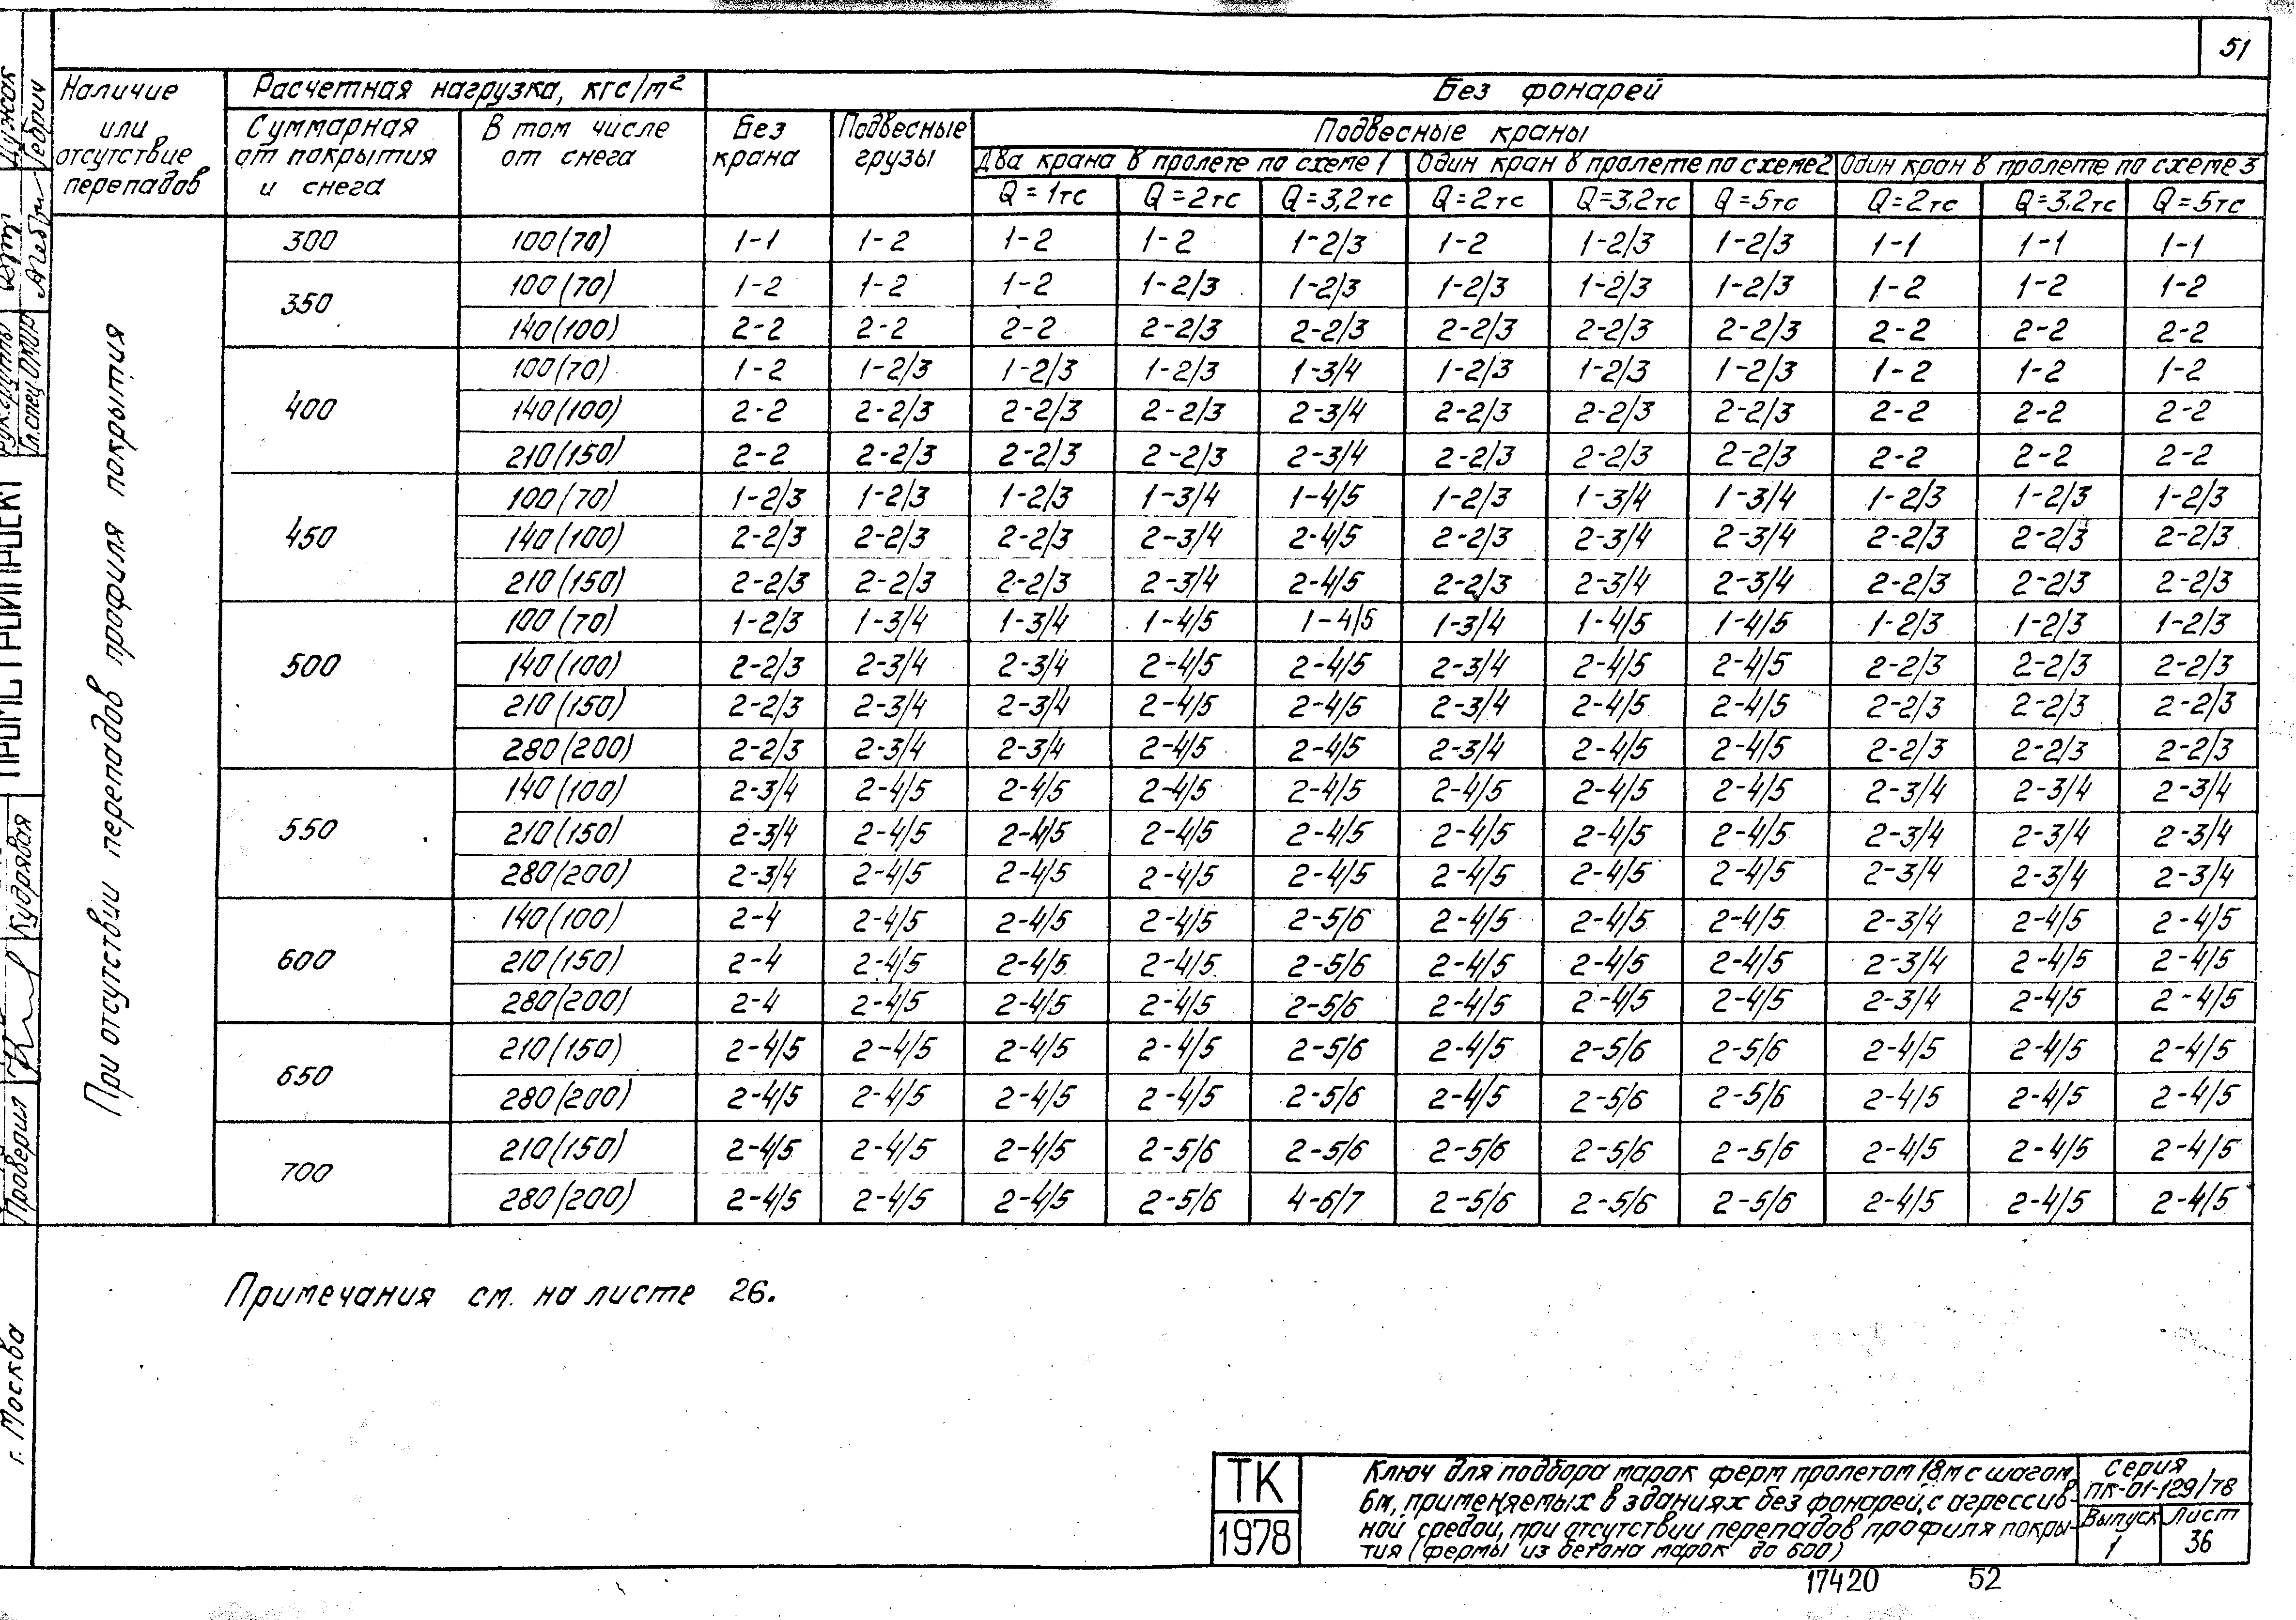 51
Наличие или отсутствие перепадов
Расчетная нагрузка, кгс/м²
Без фонарей
Суммарная от покрытия и снега
В том числе от снега
Без крана
Подвесные грузы
Подвесные краны
Два крана в пролете по схеме 1
Один кран в пролете по схеме 2
Один кран в пролете по схеме 3
Q = 1тс Q = 2тс Q = 3,2тс Q = 2тс Q = 3,2тс Q = 5тс Q = 2тс Q = 3,2тс Q = 5тс
При отсутствии перепадов профиля покрытия
300 100(70) 1-1 1-2 1-2 1-2 1-2/3 1-2 1-2/3 1-2/3 1-1 1-1 1-1
350 100(70) 1-2 1-2 1-2 1-2/3 1-2/3 1-2/3 1-2/3 1-2/3 1-2 1-2 1-2
140(100) 2-2 2-2 2-2 2-2/3 2-2/3 2-2/3 2-2/3 2-2/3 2-2 2-2 2-2
400 100(70) 1-2 1-2/3 1-2/3 1-2/3 1-3/4 1-2/3 1-2/3 1-2/3 1-2 1-2 1-2
140(100) 2-2 2-2/3 2-2/3 2-2/3 2-3/4 2-2/3 2-2/3 2-2/3 2-2 2-2 2-2
210(150) 2-2 2-2/3 2-2/3 2-2/3 2-3/4 2-2/3 2-2/3 2-2/3 2-2 2-2 2-2
450 100(70) 1-2/3 1-2/3 1-2/3 1-3/4 1-4/5 1-2/3 1-3/4 1-3/4 1-2/3 1-2/3 1-2/3
140(100) 2-2/3 2-2/3 2-2/3 2-3/4 2-4/5 2-2/3 2-3/4 2-3/4 2-2/3 2-2/3 2-2/3
210(150) 2-2/3 2-2/3 2-2/3 2-3/4 2-4/5 2-2/3 2-3/4 2-3/4 2-2/3 2-2/3 2-2/3
500 100(70) 1-2/3 1-3/4 1-3/4 1-4/5 1-4/5 1-3/4 1-4/5 1-4/5 1-2/3 1-2/3 1-2/3
140(100) 2-2/3 2-3/4 2-3/4 2-4/5 2-4/5 2-3/4 2-4/5 2-4/5 2-2/3 2-2/3 2-2/3
210(150) 2-2/3 2-3/4 2-3/4 2-4/5 2-4/5 2-3/4 2-4/5 2-4/5 2-2/3 2-2/3 2-2/3
280(200) 2-2/3 2-3/4 2-3/4 2-4/5 2-4/5 2-3/4 2-4/5 2-4/5 2-2/3 2-2/3 2-2/3
550 140(100) 2-3/4 2-4/5 2-4/5 2-4/5 2-4/5 2-4/5 2-4/5 2-4/5 2-3/4 2-3/4 2-3/4
210(150) 2-3/4 2-4/5 2-4/5 2-4/5 2-4/5 2-4/5 2-4/5 2-4/5 2-3/4 2-3/4 2-3/4
280(200) 2-3/4 2-4/5 2-4/5 2-4/5 2-4/5 2-4/5 2-4/5 2-4/5 2-3/4 2-3/4 2-3/4
600 140(100) 2-4 2-4/5 2-4/5 2-4/5 2-5/6 2-4/5 2-4/5 2-4/5 2-3/4 2-4/5 2-4/5
210(150) 2-4 2-4/5 2-4/5 2-4/5 2-5/6 2-4/5 2-4/5 2-4/5 2-3/4 2-4/5 2-4/5
280(200) 2-4 2-4/5 2-4/5 2-4/5 2-5/6 2-4/5 2-4/5 2-4/5 2-3/4 2-4/5 2-4/5
650 210(150) 2-4/5 2-4/5 2-4/5 2-4/5 2-5/6 2-4/5 2-5/6 2-5/6 2-4/5 2-4/5 2-4/5
280(200) 2-4/5 2-4/5 2-4/5 2-4/5 2-5/6 2-4/5 2-5/6 2-5/6 2-4/5 2-4/5 2-4/5
700 210(150) 2-4/5 2-4/5 2-4/5 2-5/6 2-5/6 2-5/6 2-5/6 2-5/6 2-4/5 2-4/5 2-4/5
280(200) 2-4/5 2-4/5 2-4/5 2-5/6 4-6/7 2-5/6 2-5/6 2-5/6 2-4/5 2-4/5 2-4/5
Примечания см. на листе 26.
Кудрявая
Проверил
г. Москва
ТК
1978
Ключ для подбора марок ферм пролетом 18м с шагом
6м, применяемых в зданиях без фонарей, с агрессив-
ной средой, при отсутствии перепадов профиля покры-
тия (фермы из бетона марок до 600)
серия
ПК-01-129/78
Выпуск Лист
1 36
17420 52